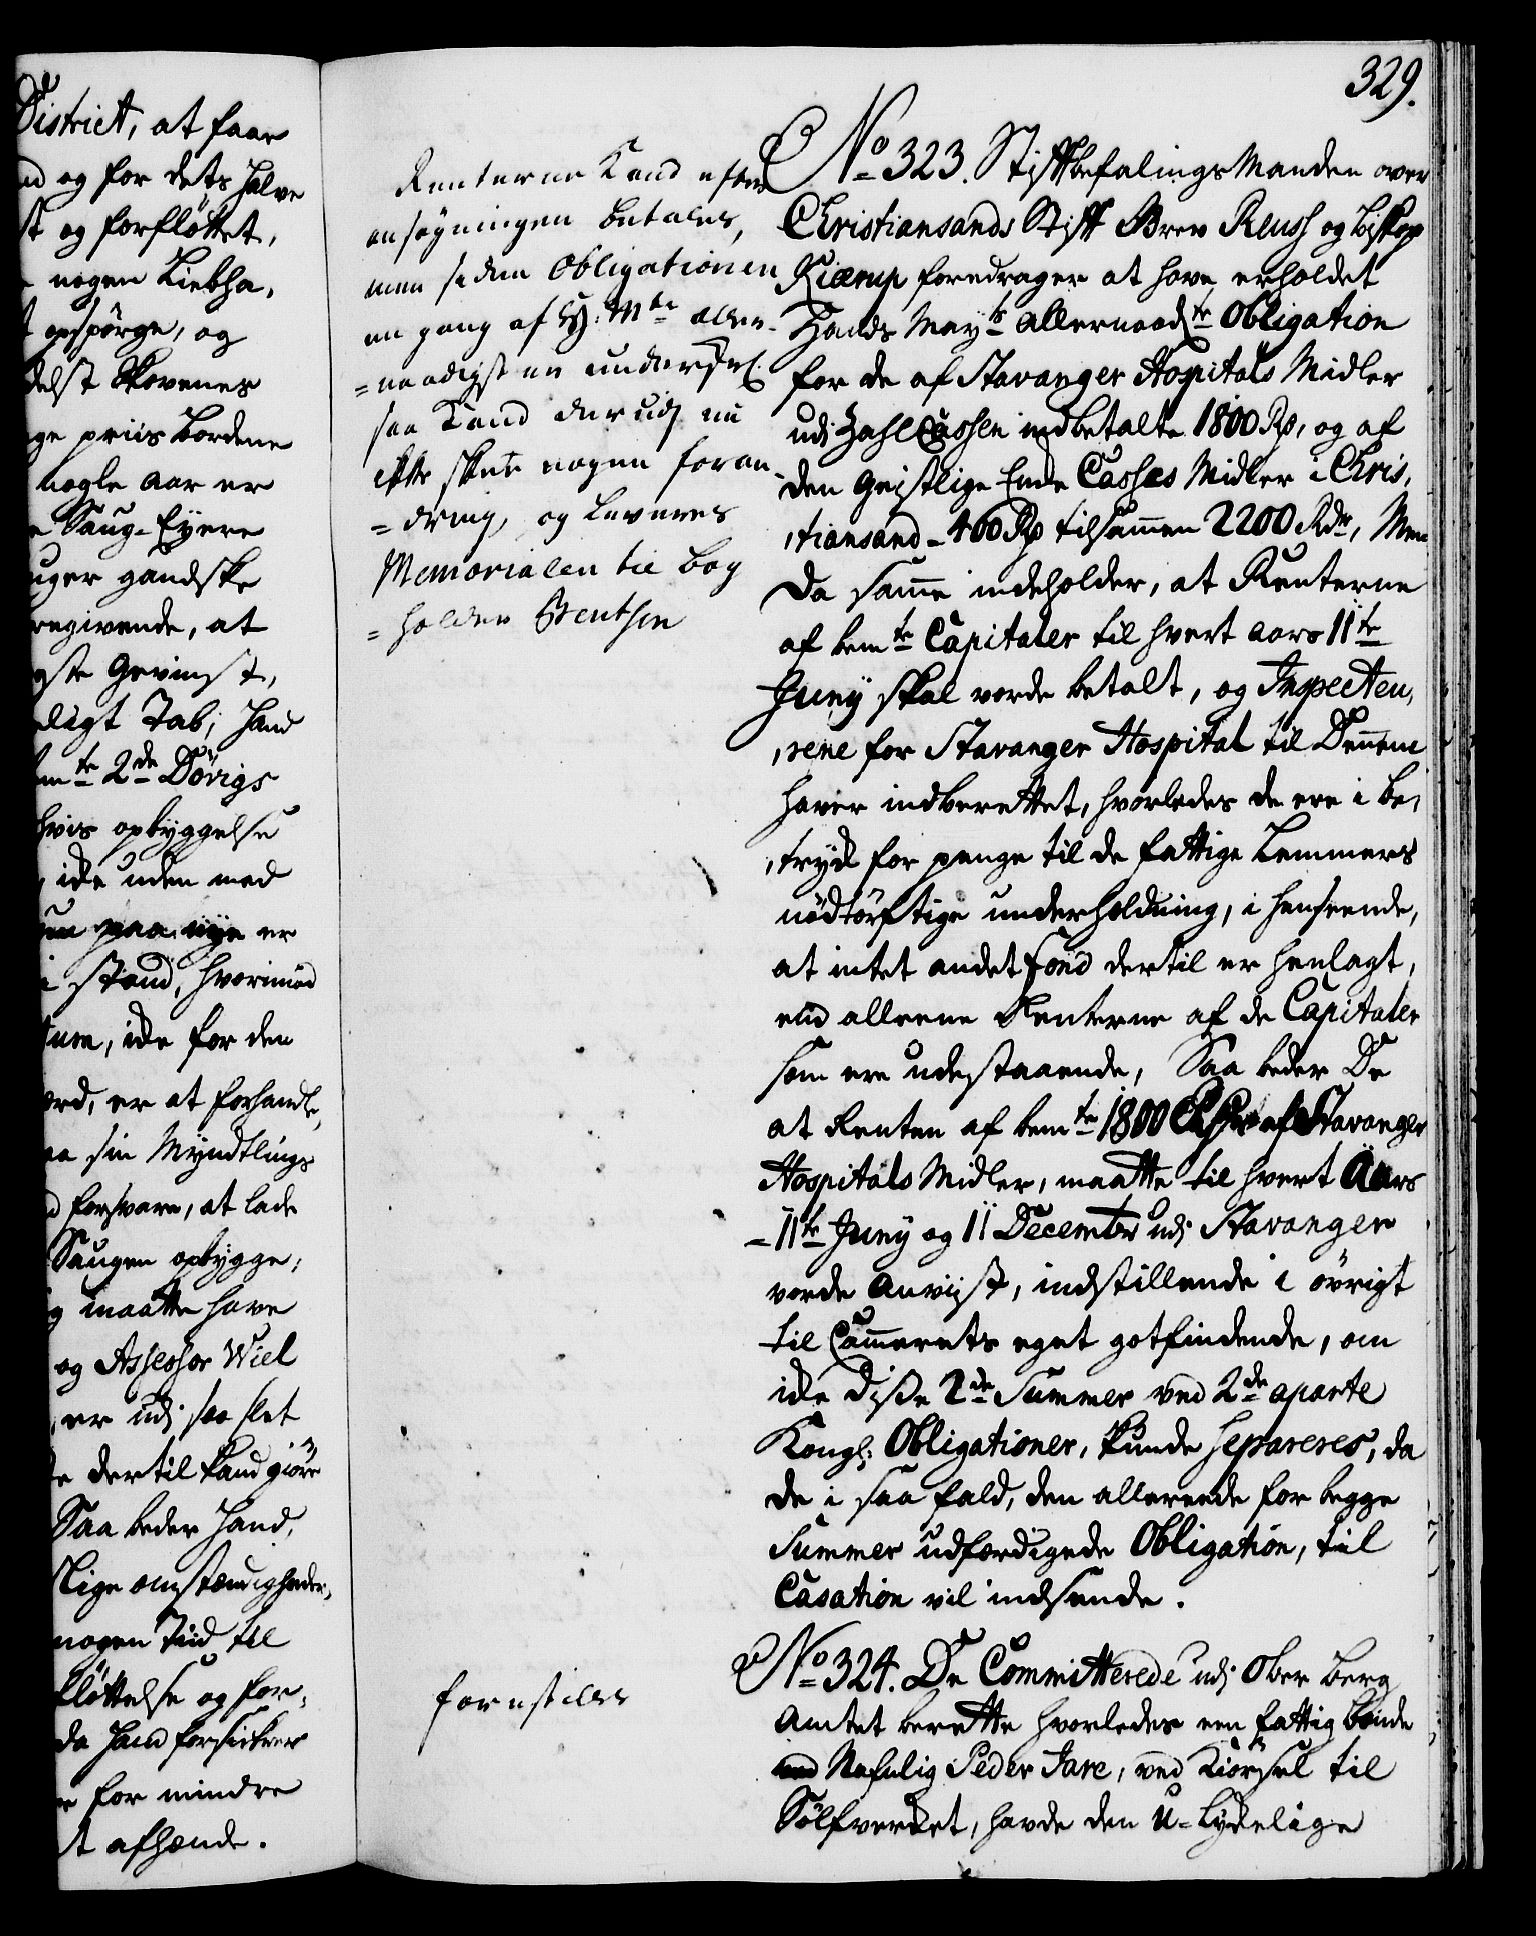 District, at faar
nd og for dets halve
st og forfløttet,
nogen Liebha,
t opspörge, og
delst Skovenes
ge priis Bordene
nogle Aar er
e Saug-Eyere
uger gandske
regivende, at
gste Gevinst,
deligt Tab; Hand
bemte 2de Dövigs
hvis opbyggelse
icke uden med
paa nye er
i stand, hvorimod
icke for den
værd, er at forhandle,
aa sin Myndtlings
d forsvare, at lade
Saugen opbygge;
g maatte have
og Assessor Wiel
er udj saa slet
e dertil kand giöre
Saa beder Hand,
slige omstændigheder,
nogen Tiid til
fløttelse og for-
da Hand forsickrer
e for mindre
t afhænde.
329.
Renterne Kand efter
ansøgningen betales,
men siden Obligationen
en gang af Hs: Mte aller-
=naadigst er underskr:
saa Kand derudj nu
ikke skee nogen foran-
=dring, og leveres
Memorialen til bog
=holder Bentsen
No 323. Stiftbefalings Manden over
Christiansands Stift Brev Reuss og biskop
Kiærup foredrager at have erholdet
Hands Mayts Allernaadste Obligation
for de af Stavanger Hospitals Midler
udj Zahl Cassen indbetalte 1800 Rd, og af
den Geistlige Enke Casses Midler i Chris,
,tiansand - 400 Rd tilsammen 2200 Rdr, Men
da samme indeholder, at Renterne
af bemte Capitaler til hvert Aars 11te
Junij skal vorde betalt, og Inspecteu,
,rene for Stavanger Hospital til Dennem
haver indberettet, hvorledes de ere i be,
,tryck for penge til de fattige Lemmers
nödtörftige underholdning, i henseende,
at intet andet Fond dertil er henlagt,
end alleene Renterne af de Capitaler
som ere udestaaende, Saa beder De
at Renten af bemte 1800 Rdr af Stavanger
Hospitals Midler, maatte til hvert Aars
- 11te Junij og 11 Decembr udj Stavanger
vorde Anviist, indstillende i övrigt
til Cammerets eget gotfindende, om
icke disse 2de Summer ved 2de aparte
Kongl: Obligationer, kunde separeres, da
de i saa fald, den allereede for begge
Summer udfærdigede Obligation, til
Casation vil indsende.
forestilles
No 324. De Committerede udj Ober Berg
Amtet berette hvorledes een fattig bonde
ved Nafnlig Peder Jare, ved Kiörsel til
Sölfverket, havde den U-Lyckelige